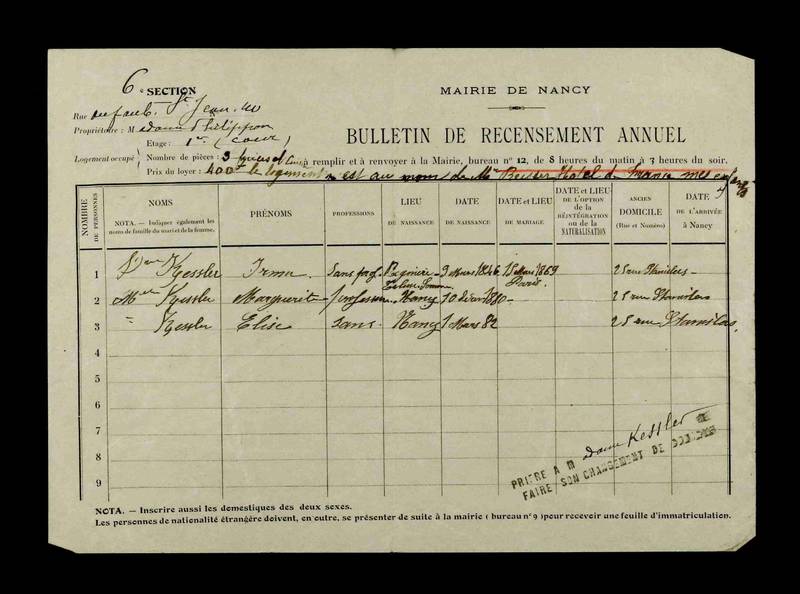 6e SECTION
MAIRIE DE NANCY
Rue du faub. St Jean
Propriétaire : M dame Philippon
Etage : 1er (cour)
BULLETIN DE RECENSEMENT ANNUEL
Logement occupé
Nombre de pièces : 3
à remplir et à renvoyer à la Mairie, bureau n° 12, de 8 heures du matin à 3 heures du soir.
Prix du loyer : 400f le logement est au nom de Mr Hotel de France mes enfants
NOMBRE DE PERSONNES
NOMS
NOTA. — Indiquer également les noms de famille du mari et de la femme.
PRÉNOMS
PROFESSIONS
LIEU DE NAISSANCE
DATE DE NAISSANCE
DATE et LIEU DE MARIAGE
DATE et LIEU DE L'OPTION de la RÉINTÉGRATION ou de la NATURALISATION
ANCIEN DOMICILE (Rue et Numéro)
DATE DE L'ARRIVÉE à Nancy
1 Kessler Irma Sans prof. 3 Mars 1846 15 Mars 1869 Paris. 25 rue Stanislas
2 Melle Kessler Marguerite professeur Nancy 10 1880 25 rue Stanislas
3 " Kessler Elise sans Nancy 1 Mars 82 25 rue Stanislas
4
5
6
7
8
9
dame Kessler
PRIÈRE A M DE
FAIRE SON CHANGEMENT DE DOMICILE
NOTA. — Inscrire aussi les domestiques des deux sexes.
Les personnes de nationalité étrangère doivent, en outre, se présenter de suite à la mairie ( bureau n° 9 ) pour recevoir une feuille d'immatriculation.